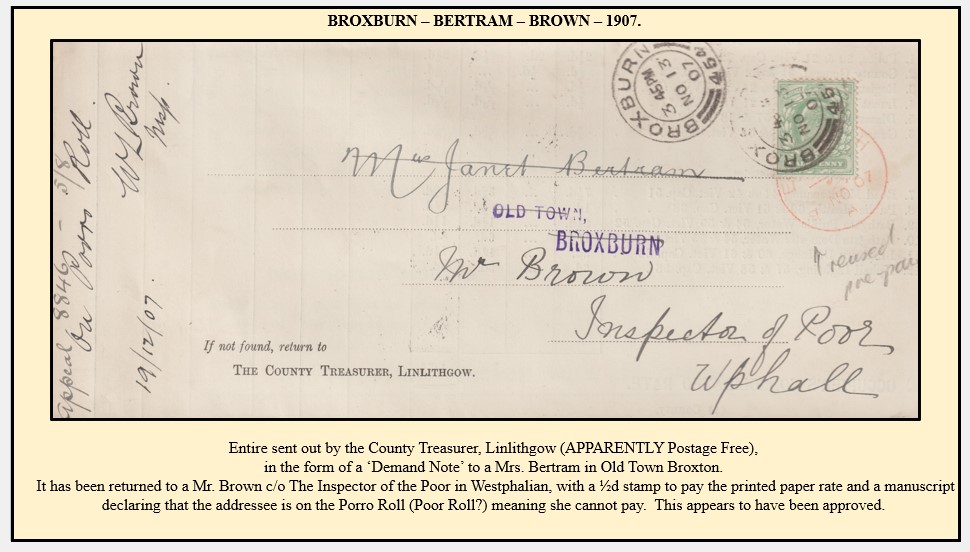 BROXBURN – BERTRAM – BROWN – 1907.
BROXBURN
3 45PM
NO 13
07
454
BROXBURN
Mrs Janet Bertram
OLD TOWN,
BROXBURN
Mr Brown
Inspector of Poor
Wphall
reused
pre-paid
If not found, return to
THE COUNTY TREASURER, LINLITHGOW.
appeal 8846 – 5/8
On Poors Roll.
W L Brown
Insp.
19/12/07.
Entire sent out by the County Treasurer, Linlithgow (APPARENTLY Postage Free),
in the form of a ‘Demand Note’ to a Mrs. Bertram in Old Town Broxton.
It has been returned to a Mr. Brown c/o The Inspector of the Poor in Westphalian, with a ½d stamp to pay the printed paper rate and a manuscript
declaring that the addressee is on the Porro Roll (Poor Roll?) meaning she cannot pay.  This appears to have been approved.